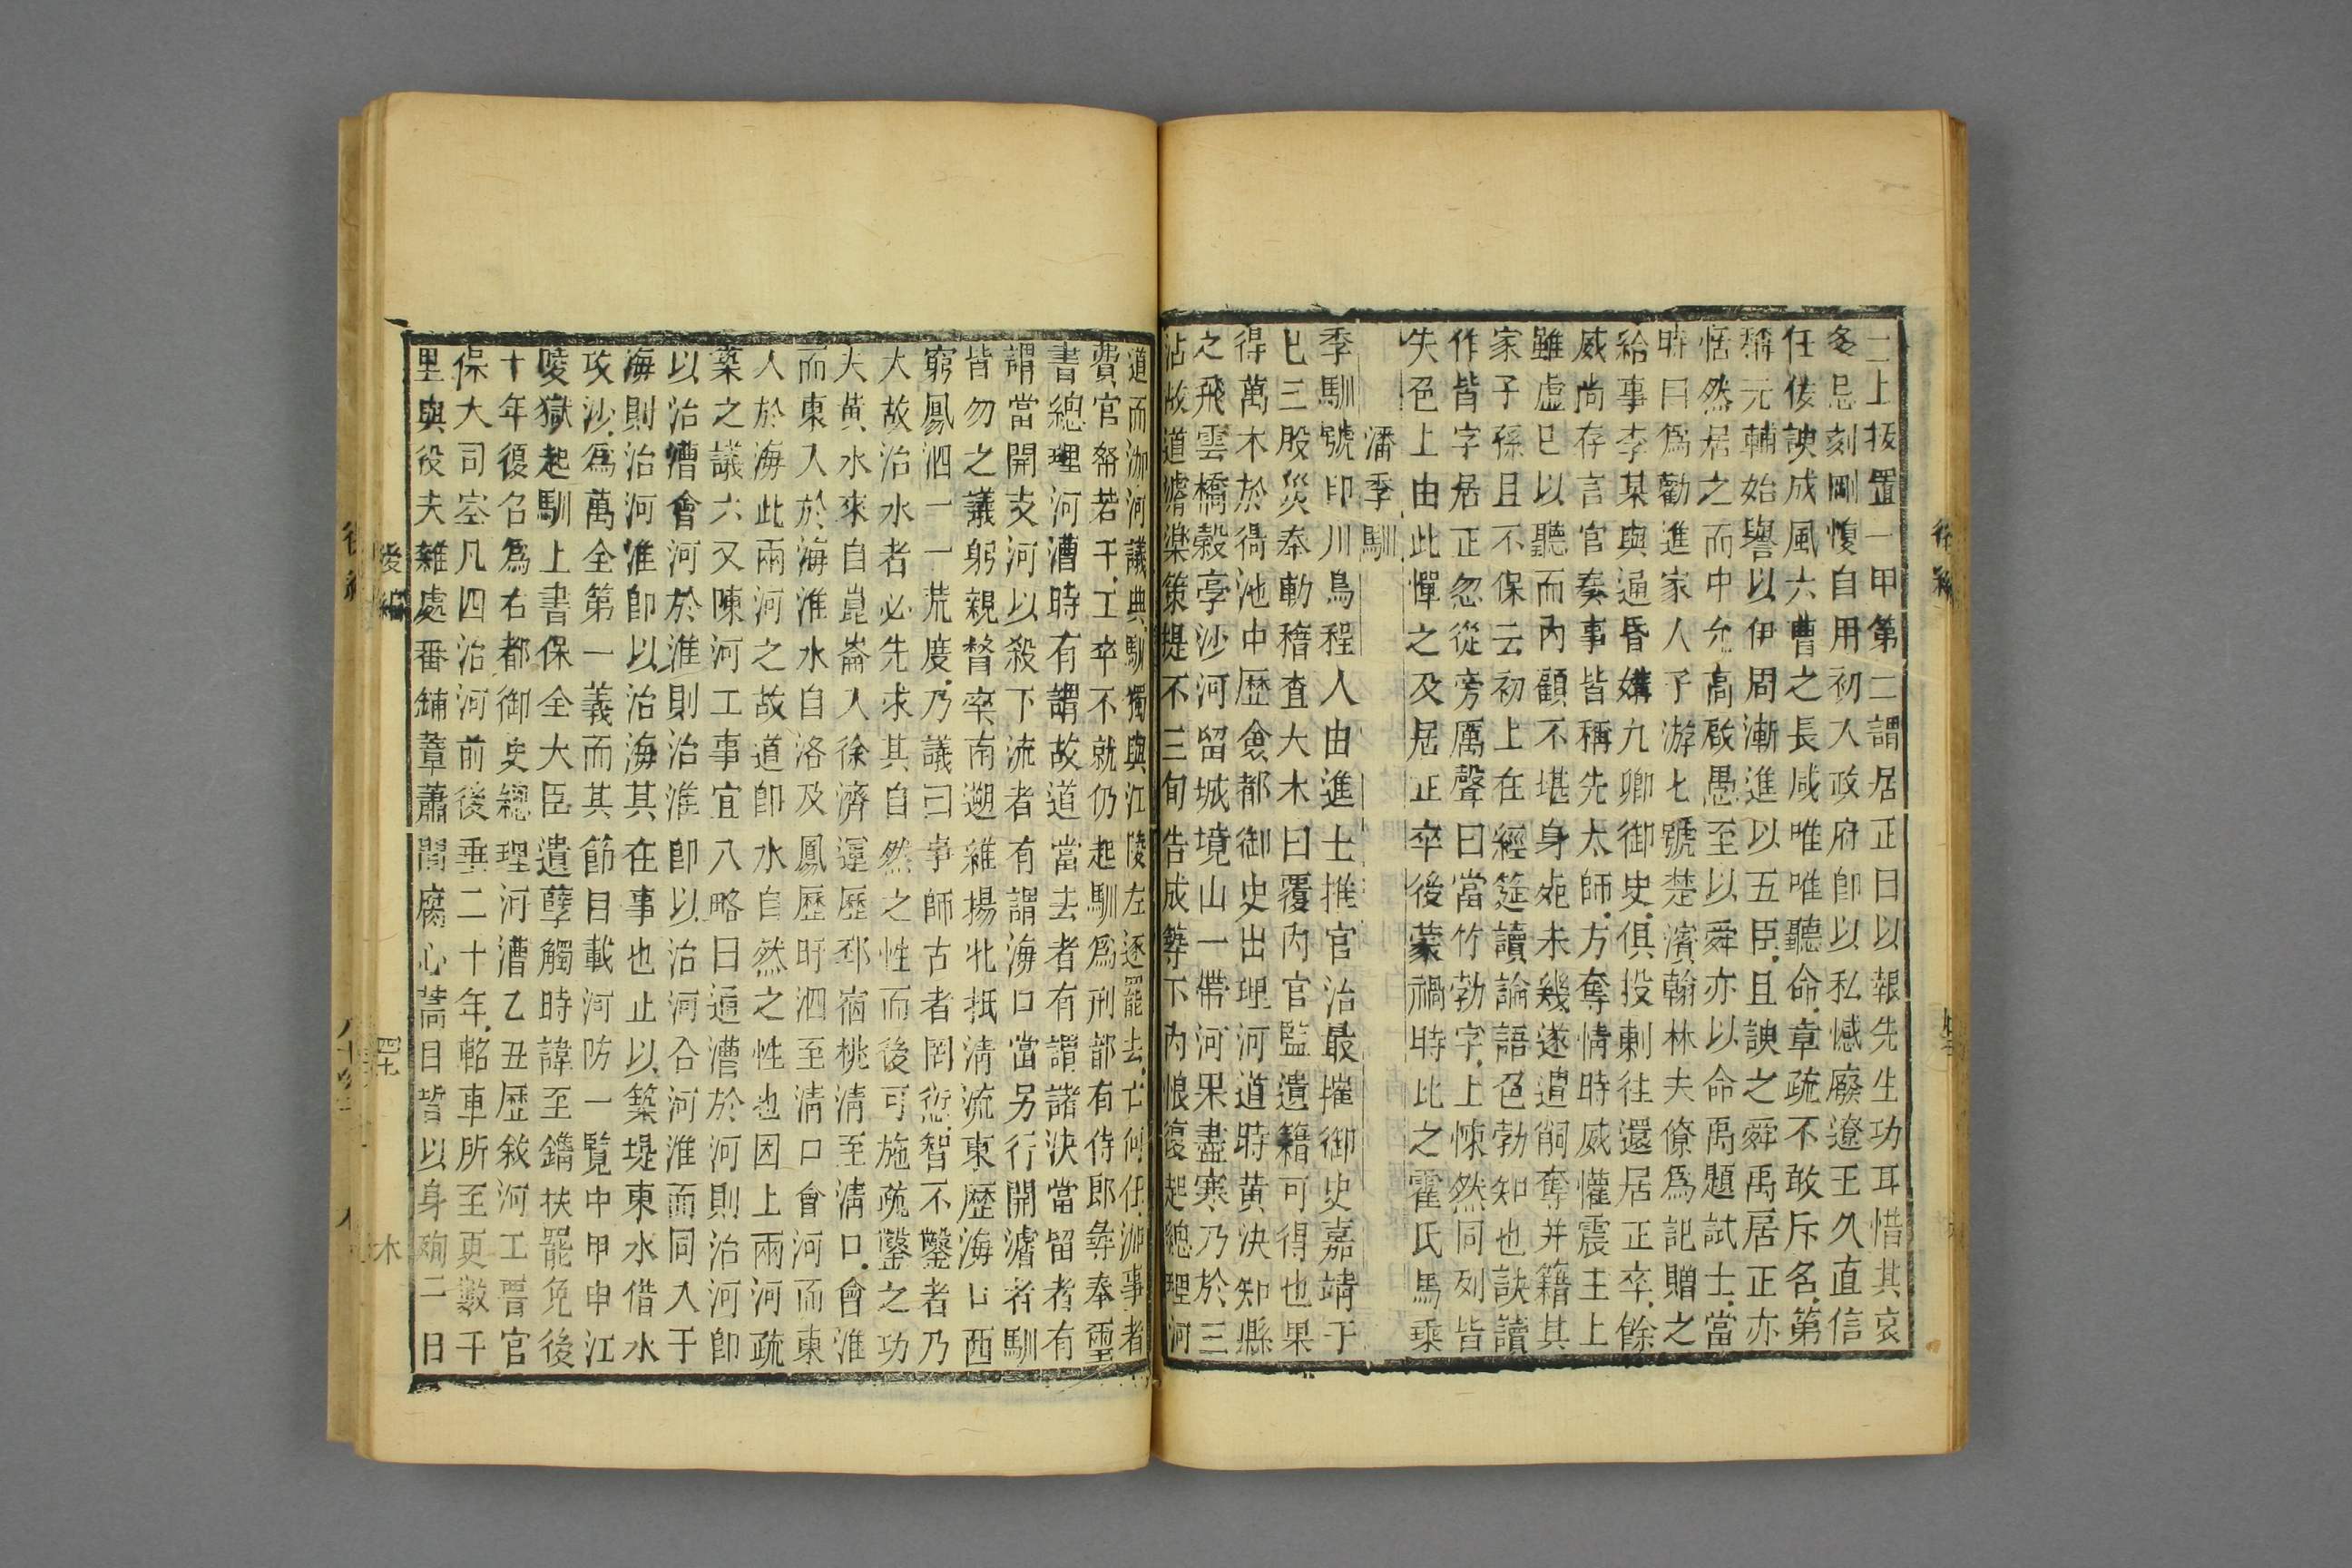 二上拔置一甲第二謂居正日以報先生功耳惜其哀
多忌刻剛愎自用初入政府卽以私憾廢遼王久直信
任佞諛成風六曹之長咸唯唯聽命章疏不敢斥名第
稱元輔始譽以伊周漸進以五臣且諛之舜禹居正亦
恬然居之而中允高啟愚至以舜亦以命禹題試士當
時曰爲勸進家人予游七號楚濱翰林夫僚爲記贈之
給事李某與通昏媾九卿御史俱投剌往還居正卒餘
威尚存言官奏事皆稱先太師方奪情時威懽震主上
雖虛已以聽而內顧不堪身宛未幾遂遣削奪并籍其
家子孫且不保云初上在經筵讀論語色勃知也訣讀
作皆字居正忽從旁厲聲曰當竹勃字上悚然同列皆
失色上由此憚之及居正卒後蒙禍時比之霍氏馬乘
潘季馴
季馴號印川烏程人由進士推官治最擢御史嘉靖于
巳三殷災奉勅稽査大木曰覆內官監遺籍可得也果
得萬木於得池中歷僉都御史出理河道時黃決知縣
之飛雲橋穀亭沙河留城境山一帶河果盡寒乃於三
沾故道濬渠策堤不三旬告成等下內艱復起總理河
道而泇河議典馴獨與江陵左逐罷去亡何任泇事者
費官帑若干工卒不就仍起馴爲刑部有侍郎彝奉璽
書總理河漕時有謂故道當去者有謂諸決當留者有
謂當開支河以殺下流者有謂海口當另行開濬者馴
皆勿之議躬親督率南遡雒場北抵淸流東歷海口西
窮鳳泗一一荒度乃議曰事師古者罔愆智不鑿者乃
大故治水者必先求其自然之性而後可施疏鑿之功
夫黃水來自崑崙入徐濟運歷邳宿桃淸至淸口會淮
而東入於海淮水自洛及鳳歷盱泗至淸口會河而東
人於海此兩河之故道卽水自然之性也因上兩河疏
築之議六又陳河工事宜八略曰通漕於河則治河卽
以治漕會河於淮則治淮卽以治河合河淮而同入于
海則治河淮卽以治海其在事也止以築堤東水借水
攻沙爲萬全第一義而其節目載河防一覽中甲申江
陵獄起馴上書保全大臣遺孽觸時諱至鐫扶罷免後
十年復召爲右都御史總理河漕乙丑歷敘河工晉官
保大司空凡四治河前後垂二十年輅車所至更數千
里與役夫雜處畚鍤葦蕭閒腐心蒿目誓以身殉二日
後編
木